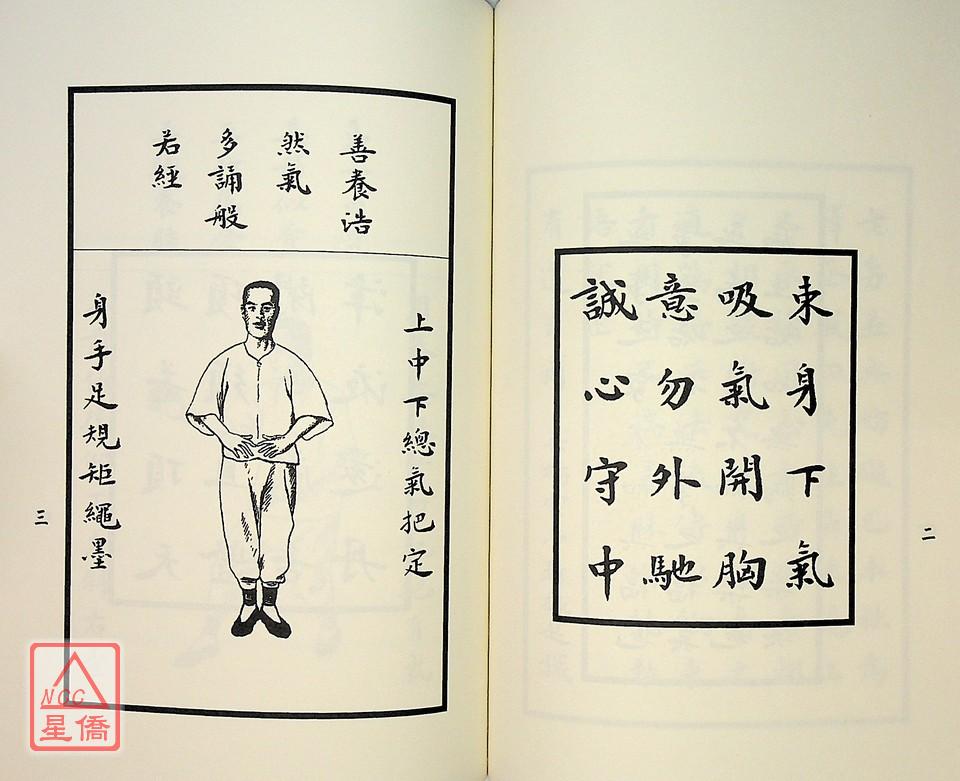 束身下氣
吸氣開胸
意勿外馳
誠心守中
二
善養浩
然氣
多誦般
若經
上中下總氣把定
身手足規矩繩墨
三
NCC
星僑